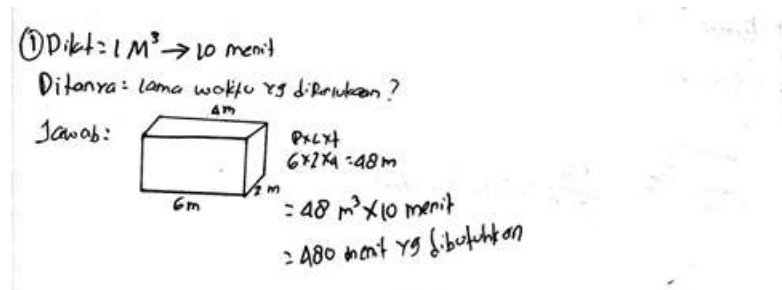 ① Diket = 1 M³ → 10 menit
Ditanya = Lama waktu yg diperlukan ?
4m
Jawab :
PxLxt
6x2x4 = 48 m
2 m
6m
= 48 m³ x 10 menit
= 480 menit yg dibutuhkan